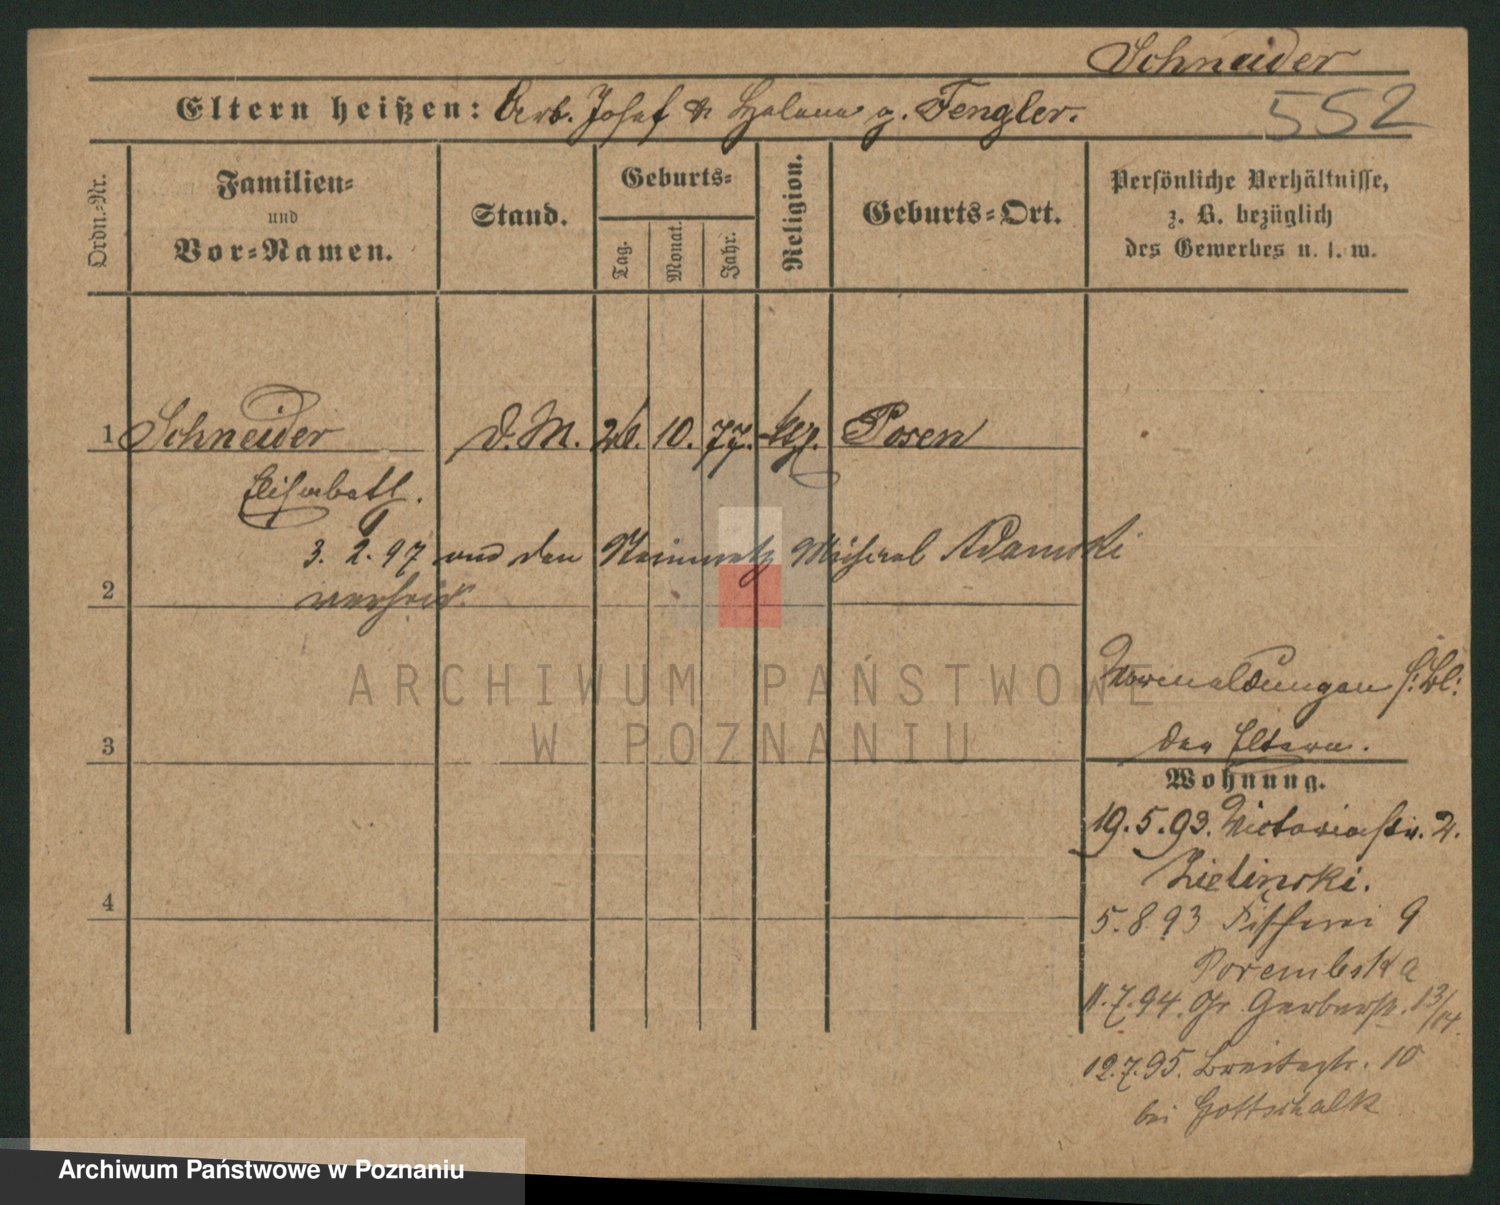 Schneider
Eltern heißen: Arb. Josef & Helene g. Fengler.
552
Ordn.-Nr.
Familien-
und
Vor-Namen.
Stand.
Geburts-
Tag.
Monat.
Jahr.
Religion.
Geburts-Ort.
Persönliche Verhältnisse,
z. B. bezüglich
des Gewerbes u. s. w.
1 Schneider D.M. 26. 10. 77. Posen
Elisabeth.
3. 2. 97 Michael Adamski
2
verheir.
ARCHIWUM PAŃSTWOWE
W POZNANIU
Vormeldungen s. Bl.
der Eltern.
3
Wohnung.
19.5.93. Victoriastr. 2.
Zielinski.
4
5.8.93 Fischerei 9
Porembska
11.7.94. Gr. Gerberstr. 13/14.
12.7.95. Breitestr. 10
bei Gottschalk
Archiwum Państwowe w Poznaniu